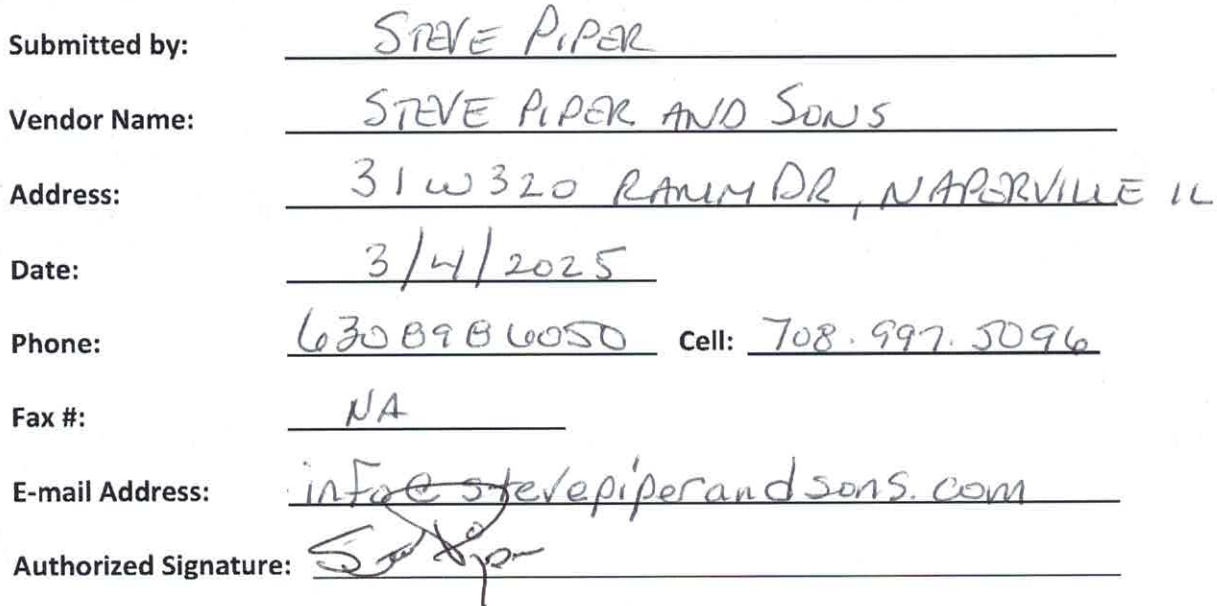 Submitted by: STEVE PIPER
Vendor Name: STEVE PIPER AND SONS
Address: 31W320 RAMM DR, NAPERVILLE IL
Date: 3/4/2025
Phone: 6308986050 Cell: 708.997.5096
Fax #: NA
E-mail Address: info@stevepiperandsons.com
Authorized Signature: